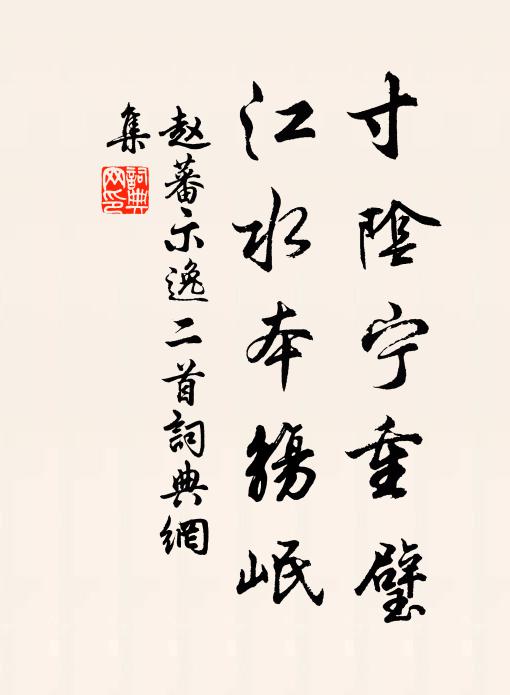 寸陰宁重璧
江水本觴岷
赵蕃示逸二首詞典網
集
詞典网印